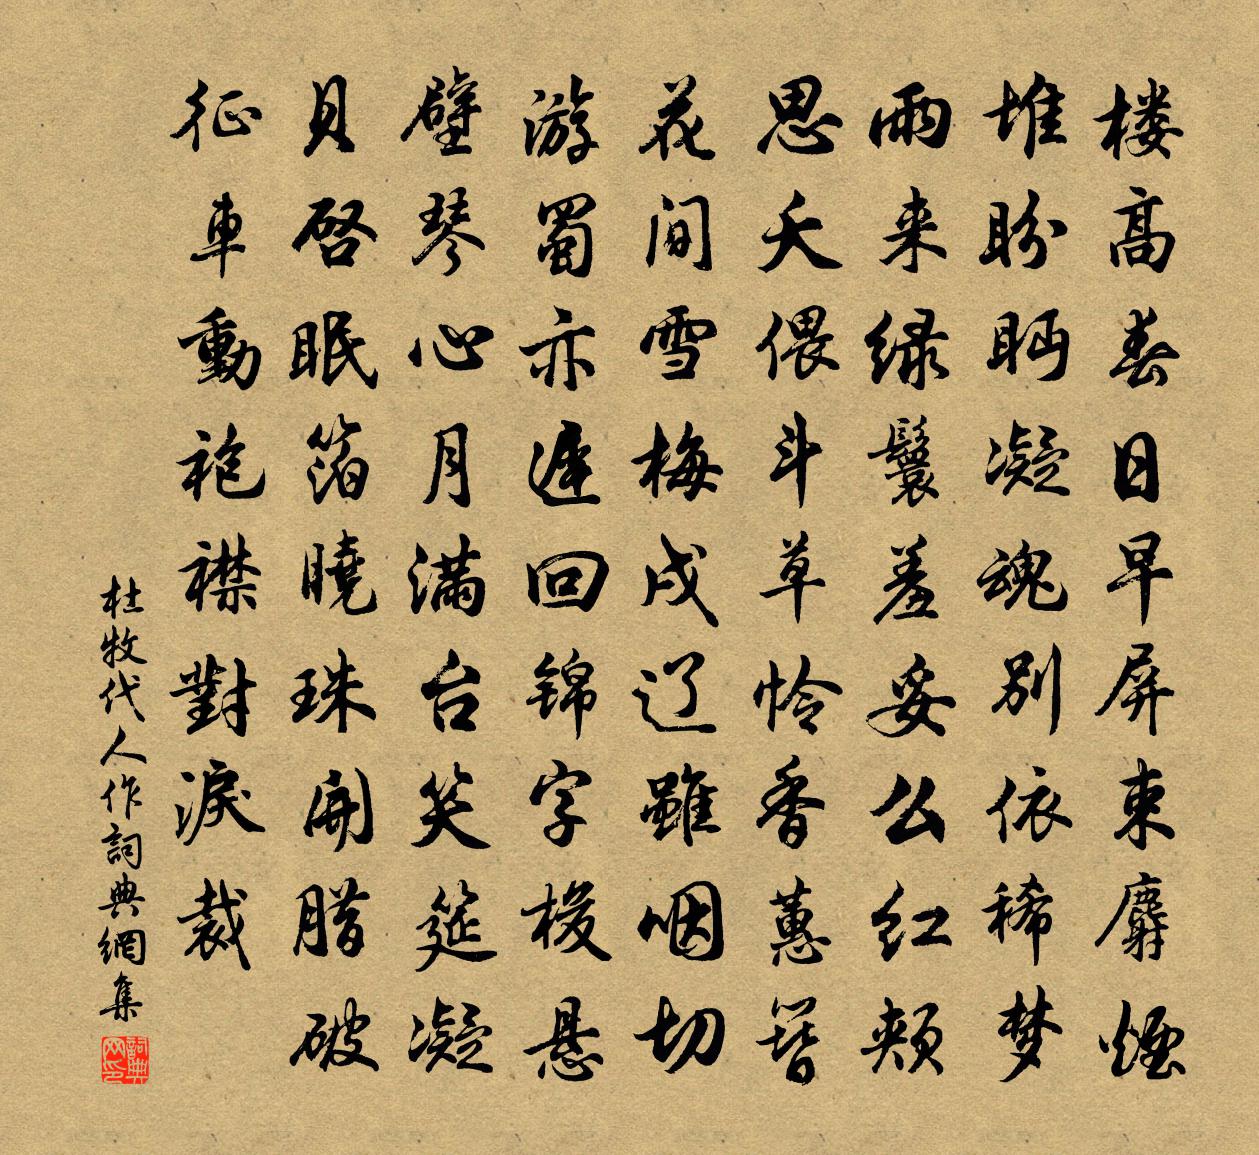 楼高春日早屏束麝煙
堆盼眄凝魂别依稀梦
雨来绿鬟羞妥么红颊
思夭偎斗草怜香蕙簪
花间雪梅戍辽虽咽切
游蜀亦迟回锦字梭悬
壁琴心月满台笑筵凝
貝启眠箔曉珠開腊破
征車動袍襟對淚裁
杜牧代人作詞典網集
詞典网印